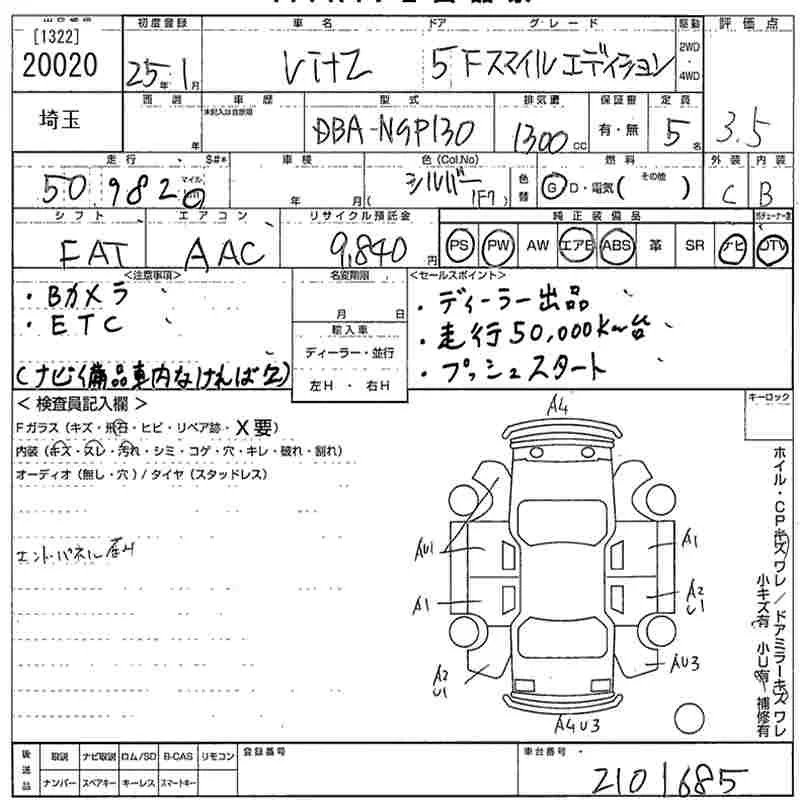 [1322]
20020
初度登録
25年1月
車名
Vitz
ドア
5
グレード
Fスマイルエディション
駆動
2WD
・
4WD
評価点
3.5
埼玉
西暦
年
車歴
未記入は自家用
型式
DBA-NSP130
排気量
1300cc
保証書
有・無
定員
5名
走行
50,982
マイル
S#*
車検
年 月
色(Col.No)
シルバー
(1F7)
色替
燃料
G D・電気( その他 )
外装
C
内装
B
シフト
FAT
エアコン
AAC
リサイクル預託金
9,840円
純正装備品
PS PW AW エアB ABS 革 SR ナビ TV
<注意事項>
・Bカメラ
・ETC
(ナビ備品車内なければ欠)
名変期限
月 日
輸入車
ディーラー・並行
左H ・ 右H
<セールスポイント>
・ディーラー出品
・走行50,000Km台
・プッシュスタート
<検査員記入欄>
Fガラス(キズ・飛石・ヒビ・リペア跡・X要)
内装(キズ・スレ・汚れ・シミ・コゲ・穴・キレ・破れ・割れ)
オーディオ(無し・穴)/タイヤ(スタッドレス)
エンドパネル歪み
キーロック
A4
AU1
A1
A1
A2
U1
A2
U1
AU3
A4U3
ホイル・CPキズワレ/ドアミラーキズワレ
小キズ有 小U有 補修有
後送品
取説 ナビ取説 ロム/SD B-CAS リモコン
ナンバー スペアキー キーレス スマートキー
登録番号
車台番号
2101685